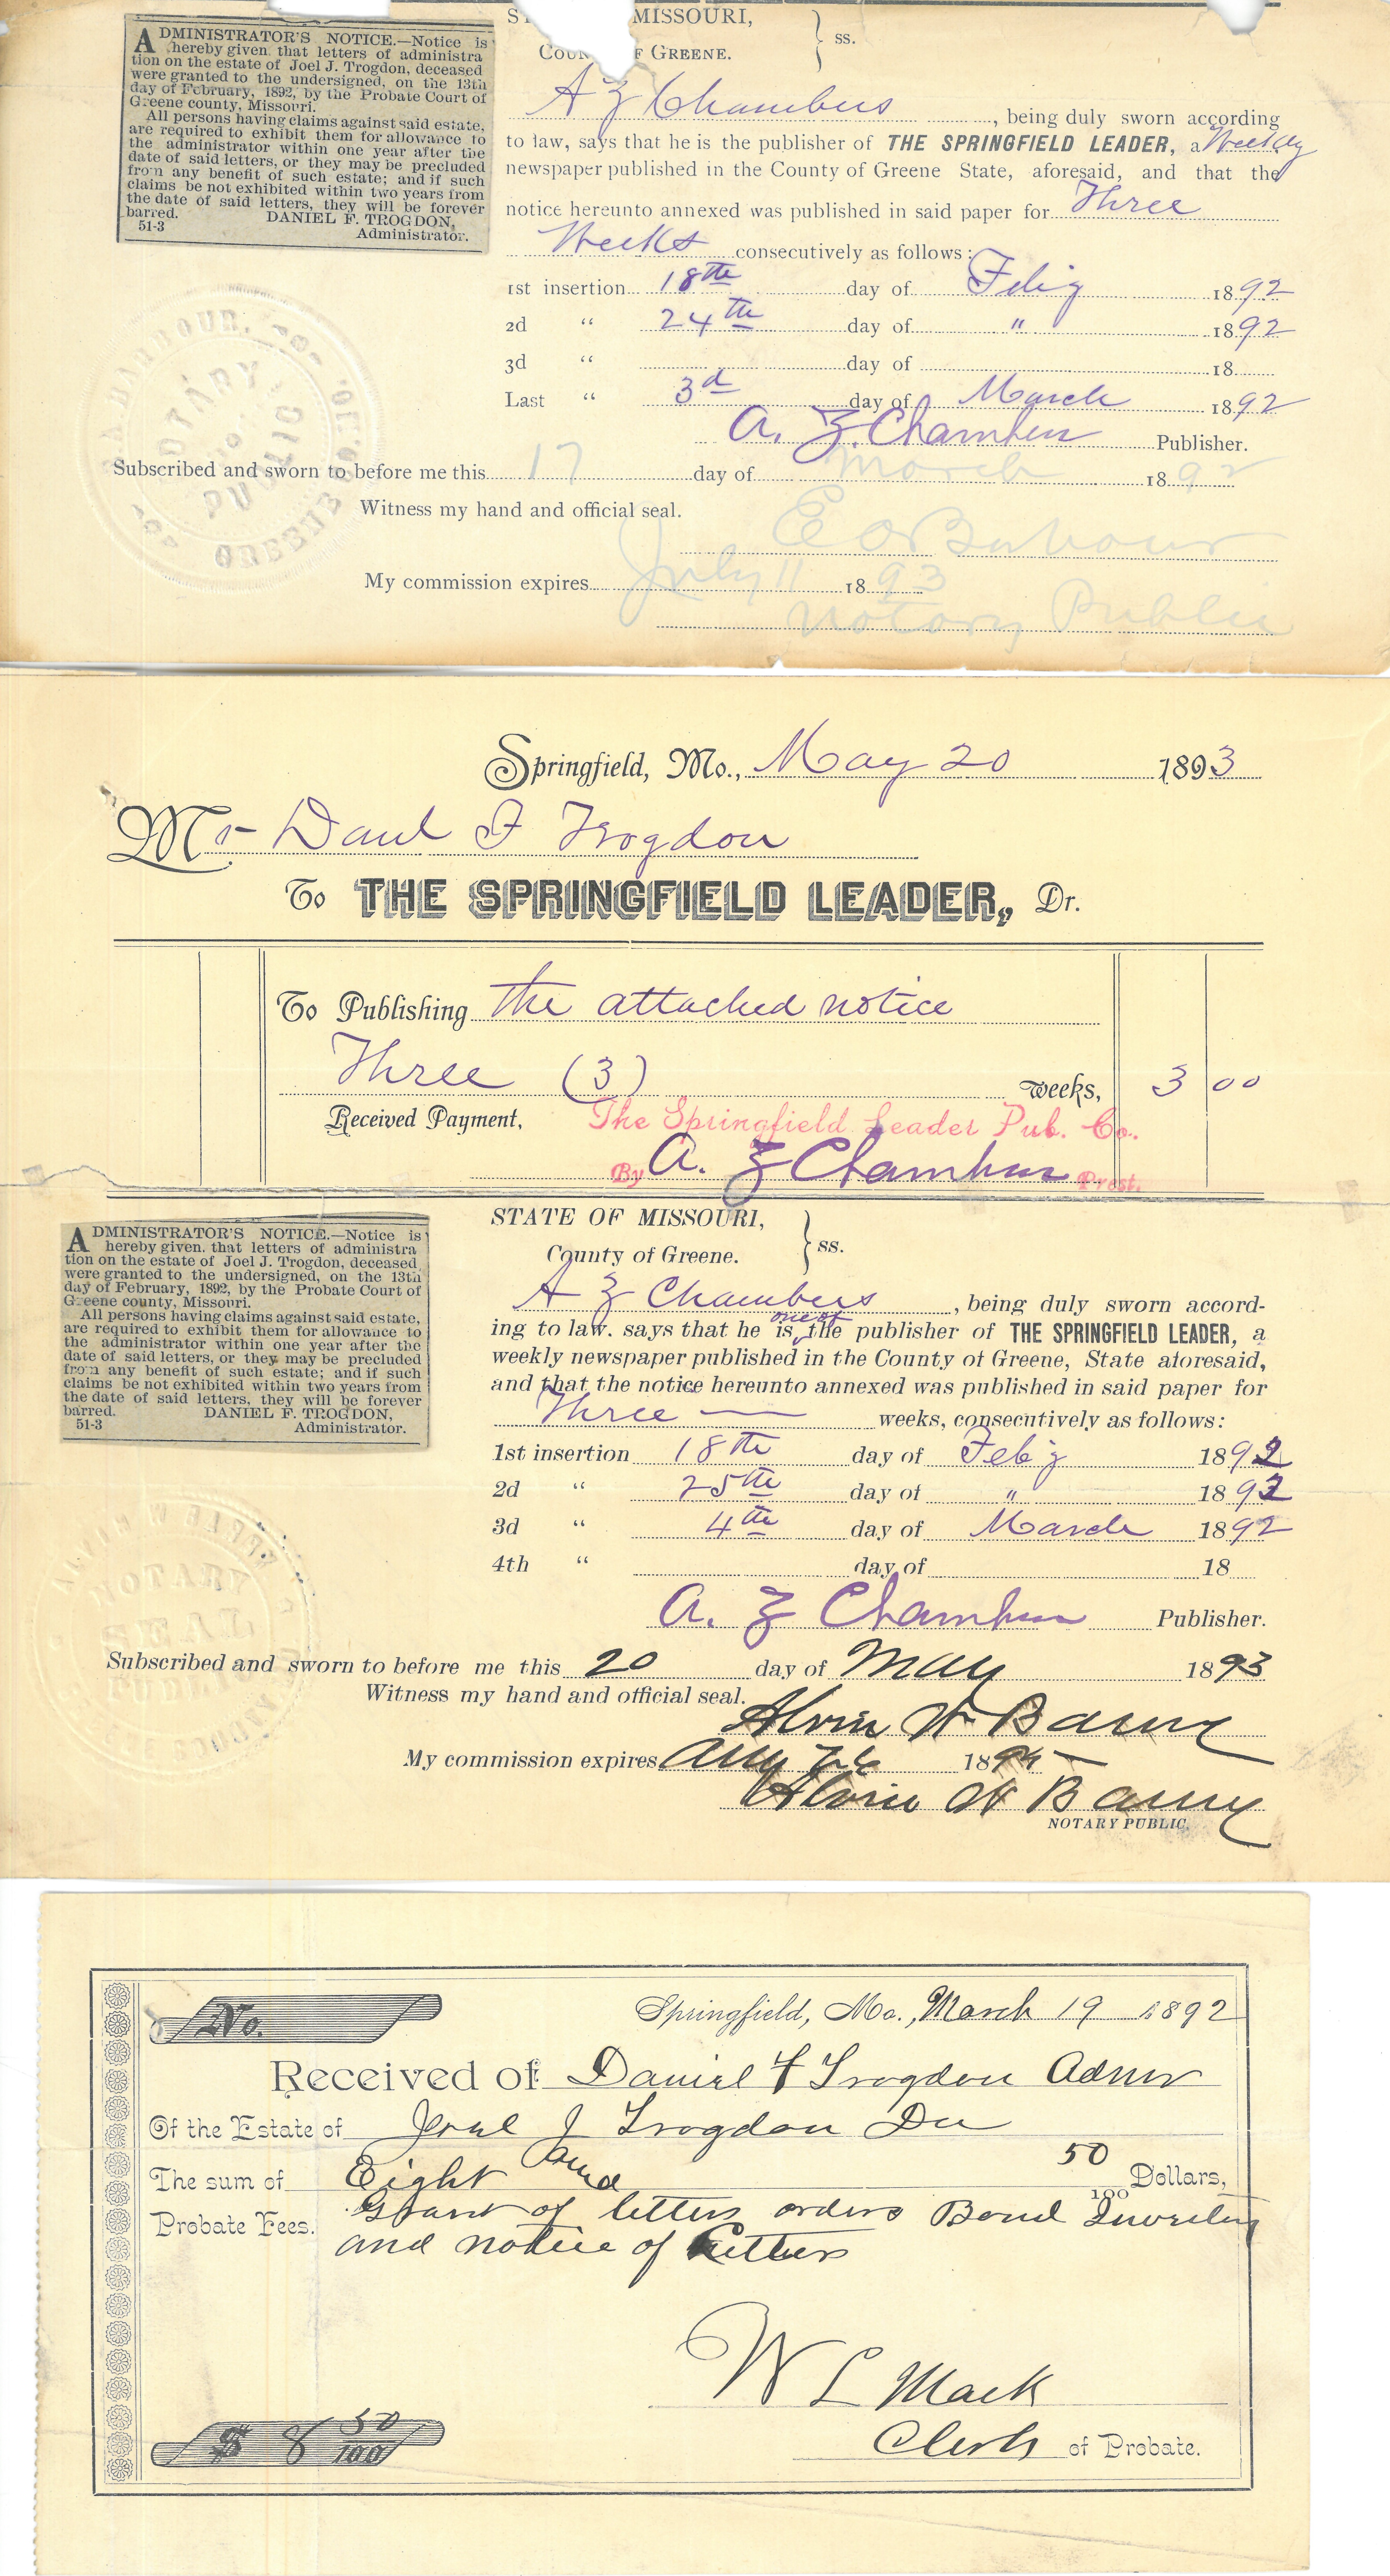 ADMINISTRATOR'S NOTICE.—Notice is
hereby given, that letters of administra
tion on the estate of Joel J. Trogdon, deceased
were granted to the undersigned, on the 13th
day of February, 1892, by the Probate Court of
Greene county, Missouri.
All persons having claims against said estate,
are required to exhibit them for allowance to
the administrator within one year after the
date of said letters, or they may be precluded
from any benefit of such estate; and if such
claims be not exhibited within two years from
the date of said letters, they will be forever
barred. DANIEL F. TROGDON,
51-3 Administrator.
MISSOURI,
OF GREENE. ss.
A Z Chambers, being duly sworn according
to law, says that he is the publisher of THE SPRINGFIELD LEADER, a Weekly
newspaper published in the County of Greene State, aforesaid, and that the
notice hereunto annexed was published in said paper for Three
Weeks consecutively as follows:
1st insertion 18th day of Feb'y 1892
2d " 24th day of " 1892
3d " day of 18
Last " 3d day of March 1892
A. Z. Chambers Publisher.
Subscribed and sworn to before me this 17 day of March 1892
Witness my hand and official seal.
E O Barbour
My commission expires July 11 1893
Notary Public
NOTARY PUBLIC
GREENE CO.
Springfield, Mo., May 20 1893
Mr Danl F Trogdon
To THE SPRINGFIELD LEADER, Dr.
To Publishing the attached notice
Three (3) weeks, 3 00
Received Payment, The Springfield Leader Pub. Co.
By A. Z Chambers Prest.
ADMINISTRATOR'S NOTICE.—Notice is
hereby given, that letters of administra
tion on the estate of Joel J. Trogdon, deceased
were granted to the undersigned, on the 13th
day of February, 1892, by the Probate Court of
Greene county, Missouri.
All persons having claims against said estate,
are required to exhibit them for allowance to
the administrator within one year after the
date of said letters, or they may be precluded
from any benefit of such estate; and if such
claims be not exhibited within two years from
the date of said letters, they will be forever
barred. DANIEL F. TROGDON,
51-3 Administrator.
STATE OF MISSOURI,
County of Greene. ss.
A Z Chambers, being duly sworn accord-
ing to law. says that he is one of the publisher of THE SPRINGFIELD LEADER, a
weekly newspaper published in the County of Greene, State aforesaid,
and that the notice hereunto annexed was published in said paper for
Three — weeks, consecutively as follows:
1st insertion 18th day of Feb'y 1892
2d " 25th day of " 1892
3d " 4th day of March 1892
4th " day of 18
A. Z Chambers Publisher.
Subscribed and sworn to before me this 20 day of May 1893
Witness my hand and official seal.
Alvin W Barry
My commission expires 18
Alvin W Barry
NOTARY PUBLIC.
NOTARY SEAL
No.
Springfield, Mo., March 19 1892
Received of Daniel F Trogdon Admr
Of the Estate of Joel J Trogdon Dec
The sum of Eight and 50/100 Dollars,
Probate Fees. Grant of letters orders Bond Inventory
and notice of Letters
W L Mack
$ 8 50/100
Clerk of Probate.